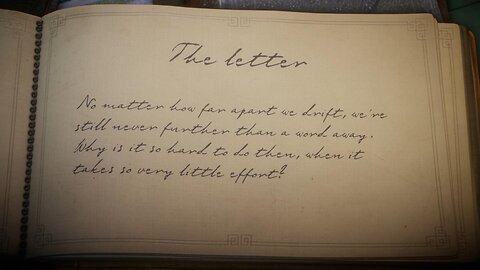 The letter
No matter how far apart we drift, we're
still never further than a word away.
Why is it so hard to do then, when it
takes so very little effort?